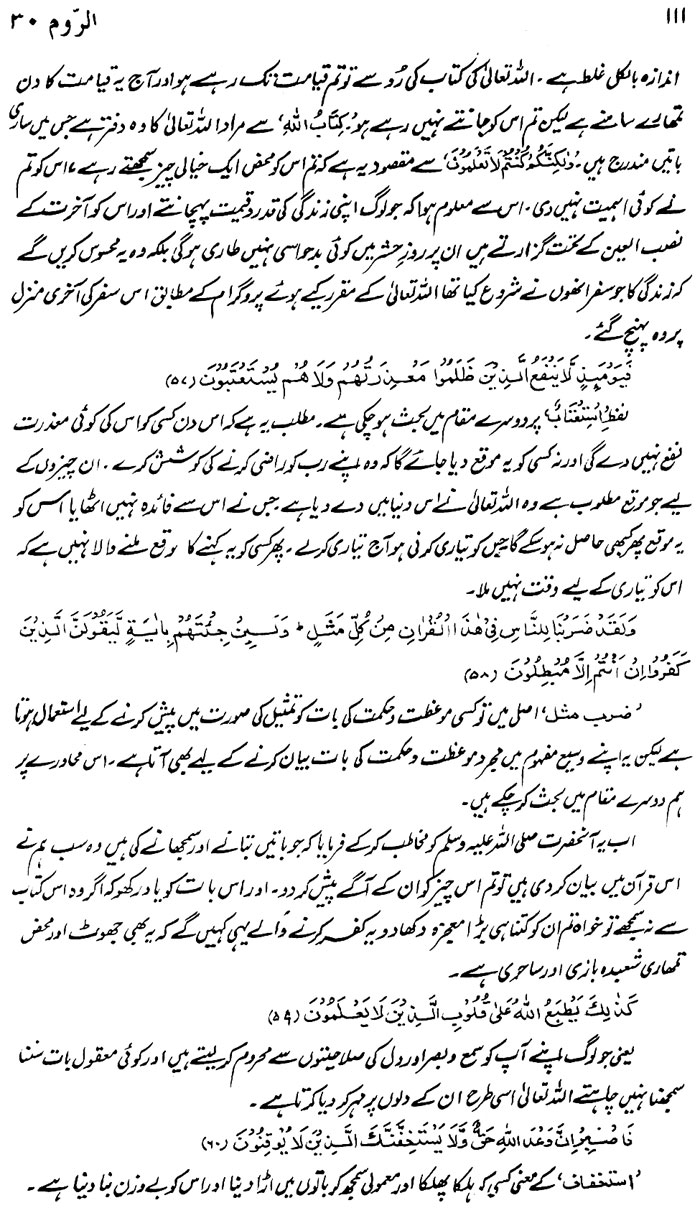 ۱۱۱
الرّوم ۳۰
اندازہ بالکل غلط ہے۔ اللہ تعالیٰ کی کتاب کی رُو سے تو تم قیامت تک رہے ہو اور آج یہ قیامت کا دن
تمھارے سامنے ہے لیکن تم اس کو جانتے نہیں رہے ہو۔ ’کِتَابُ اللّٰہِ‘ سے مراد اللہ تعالیٰ کا وہ دفتر ہے جس میں ساری
باتیں مندرج ہیں۔ ’وَلٰکِنَّکُمْ کُنْتُمْ لَا تَعْلَمُوْنَ‘ سے مقصود یہ ہے کہ تم اس کو محض ایک خیالی چیز سمجھتے رہے، اس کو تم
نے کوئی اہمیت نہیں دی۔ اس سے معلوم ہوا کہ جو لوگ اپنی زندگی کی قدر و قیمت پہچانتے اور اس کو آخرت کے
نصب العین کے تحت گزارتے ہیں ان پر روزِ حشر میں کوئی بدحواسی نہیں طاری ہوگی بلکہ وہ یہ محسوس کریں گے
کہ زندگی کا جو سفر انھوں نے شروع کیا تھا اللہ تعالیٰ کے مقرر کیے ہوئے پروگرام کے مطابق اس سفر کی آخری منزل
پر وہ پہنچ گئے۔
فَیَوْمَئِذٍ لَّا یَنْفَعُ الَّذِیْنَ ظَلَمُوْا مَعْذِرَتُھُمْ وَلَا ھُمْ یُسْتَعْتَبُوْنَ (۵۷)
لفظ ’اِسْتِعْتَابٌ‘ پر دوسرے مقام میں بحث ہو چکی ہے۔ مطلب یہ ہے کہ اس دن کسی کو اس کی کوئی معذرت
نفع نہیں دے گی اور نہ کسی کو یہ موقع دیا جائے گا کہ وہ اپنے رب کو راضی کرنے کی کوشش کرے۔ ان چیزوں کے
لیے جو موقع مطلوب ہے وہ اللہ تعالیٰ نے اس دنیا میں دے دیا ہے جس نے اس سے فائدہ نہیں اٹھایا اس کو
یہ موقع پھر کبھی حاصل نہ ہو سکے گا جس کو تیاری کرنی ہو آج تیاری کر لے۔ پھر کسی کو یہ کہنے کا موقع ملنے والا نہیں ہے کہ
اس کو تیاری کے لیے وقت نہیں ملا۔
وَلَقَدْ ضَرَبْنَا لِلنَّاسِ فِیْ ھٰذَا الْقُرْاٰنِ مِنْ کُلِّ مَثَلٍ ؕ وَلَئِنْ جِئْتَھُمْ بِاٰیَۃٍ لَّیَقُوْلَنَّ الَّذِیْنَ
کَفَرُوْٓا اِنْ اَنْتُمْ اِلَّا مُبْطِلُوْنَ (۵۸)
’ضرب مثل‘ اصل میں تو کسی موعظت و حکمت کی بات کو تمثیل کی صورت میں پیش کرنے کے لیے استعمال ہوتا
ہے لیکن یہ اپنے وسیع مفہوم میں مجرد موعظت و حکمت کی بات بیان کرنے کے لیے بھی آتا ہے۔ اس محاورے پر
ہم دوسرے مقام میں بحث کر چکے ہیں۔
اب یہ آنحضرت صلی اللہ علیہ وسلم کو مخاطب کر کے فرمایا کہ جو باتیں بتانے اور سمجھانے کی ہیں وہ سب ہم نے
اس قرآن میں بیان کر دی ہیں تو تم اس چیز کو ان کے آگے پیش کر دو۔ اور اس بات کو یاد رکھو کہ اگر وہ اس کتاب
سے نہ سمجھے تو خواہ تم ان کو کتنا ہی بڑا معجزہ دکھا دو یہ کفر کرنے والے یہی کہیں گے کہ یہ بھی جھوٹ اور محض
تمھاری شعبدہ بازی اور ساحری ہے۔
کَذٰلِکَ یَطْبَعُ اللّٰہُ عَلٰی قُلُوْبِ الَّذِیْنَ لَا یَعْلَمُوْنَ (۵۹)
یعنی جو لوگ اپنے آپ کو سمع و بصر اور دل کی صلاحیتوں سے محروم کر لیتے ہیں اور کوئی معقول بات سننا
سمجھنا نہیں چاہتے اللہ تعالیٰ اسی طرح ان کے دلوں پر مہر کر دیا کرتا ہے۔
فَاصْبِرْ اِنَّ وَعْدَ اللّٰہِ حَقٌّ وَّلَا یَسْتَخِفَّنَّکَ الَّذِیْنَ لَا یُوْقِنُوْنَ (۶۰)
’استخفاف‘ کے معنی کسی کو ہلکا پھلکا اور معمولی سمجھ کر باتوں میں اڑا دینا اور اس کو بے وزن بنا دینا ہے۔